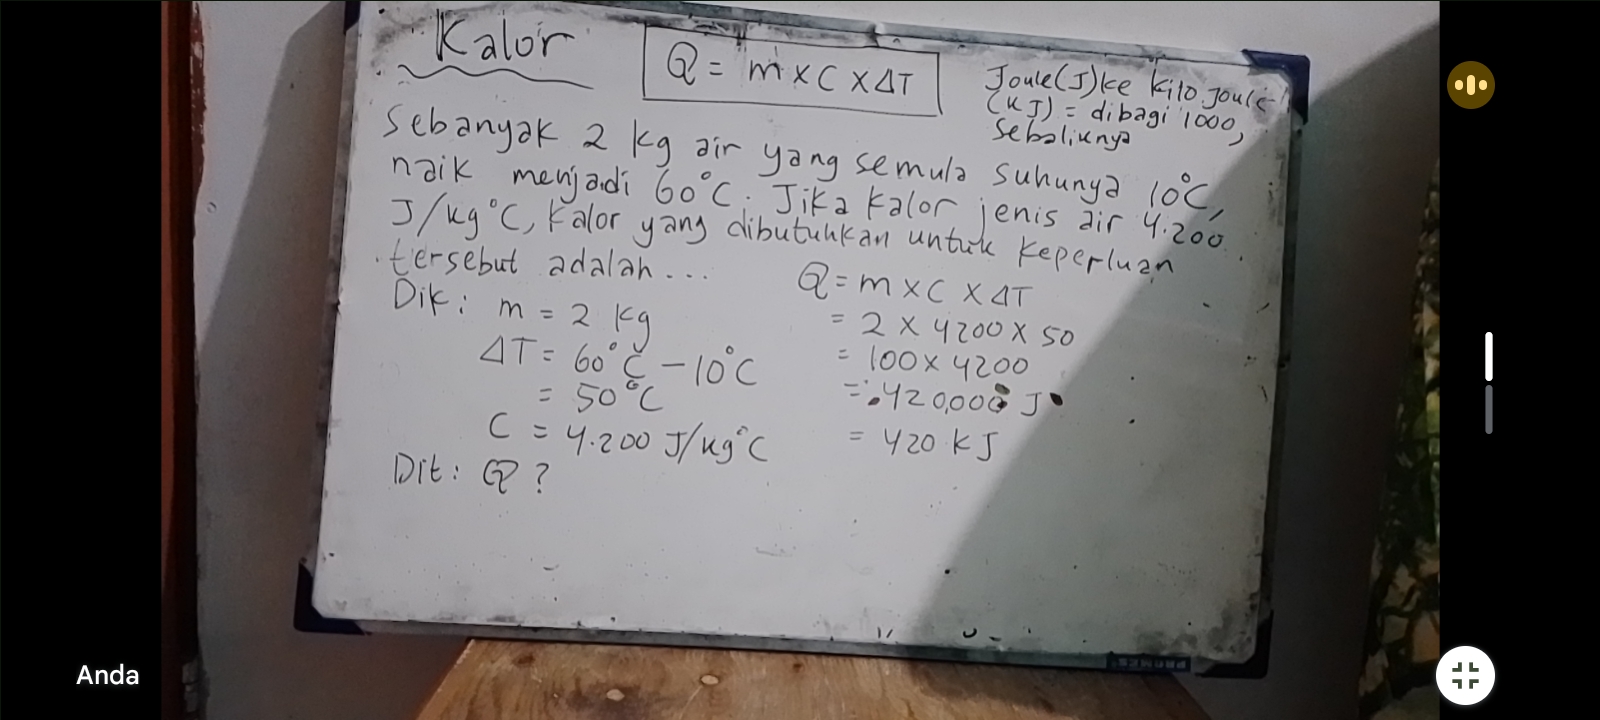 Kalor
Q = m x C x ΔT
Joule (J) ke kilo Joule
(KJ) = dibagi 1000,
sebaliknya
Sebanyak 2 kg air yang semula suhunya 10°C,
naik menjadi 60°C. Jika kalor jenis air 4.200
J/kg°C, kalor yang dibutuhkan untuk keperluan
tersebut adalah...
Dik: m = 2 kg
ΔT = 60°C - 10°C
= 50°C
C = 4.200 J/kg°C
Dit: Q?
Q = m x C x ΔT
= 2 x 4200 x 50
= 100 x 4200
= 420,000 J
= 420 kJ
Anda